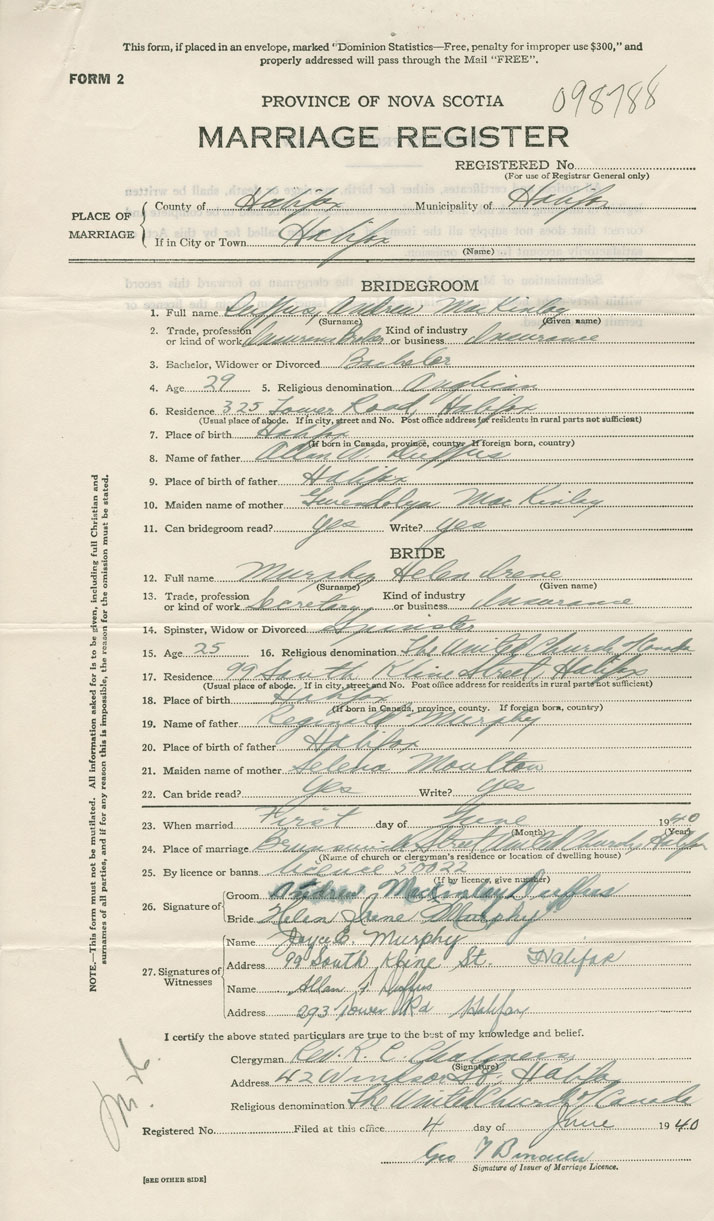 This form, if placed in an envelope, marked "Dominion Statistics—Free, penalty for improper use $300," and
properly addressed will pass through the Mail "FREE".
FORM 2
098788
PROVINCE OF NOVA SCOTIA
MARRIAGE REGISTER
REGISTERED No.
(For use of Registrar General only)
PLACE OF MARRIAGE
County of Halifax Municipality of Halifax
If in City or Town Halifax
(Name)
BRIDEGROOM
1. Full name Duffus, Andrew MacKinlay
(Surname) (Given name)
2. Trade, profession or kind of work Insurance Broker Kind of industry or business Insurance
3. Bachelor, Widower or Divorced Bachelor
4. Age 29 5. Religious denomination Anglican
6. Residence 325 Tower Road, Halifax
(Usual place of abode. If in city, street and No. Post office address for residents in rural parts not sufficient)
7. Place of birth Halifax
(If born in Canada, province, county. If foreign born, country)
8. Name of father Allan Duffus
9. Place of birth of father Halifax
10. Maiden name of mother Gwendolyn MacKinlay
11. Can bridegroom read? yes Write? yes
BRIDE
12. Full name Murphy Helen Irene
(Surname) (Given name)
13. Trade, profession or kind of work Secretary Kind of industry or business Insurance
14. Spinster, Widow or Divorced Spinster
15. Age 25 16. Religious denomination The United Church of Canada
17. Residence 99 South Kline Street, Halifax
(Usual place of abode. If in city, street and No. Post office address for residents in rural parts not sufficient)
18. Place of birth Halifax
(If born in Canada, province, county. If foreign born, country)
19. Name of father Reginald Murphy
20. Place of birth of father Halifax
21. Maiden name of mother Selena Moulton
22. Can bride read? yes Write? yes
23. When married First day of June 1940
(Month) (Year)
24. Place of marriage Brunswick Street United Church, Halifax
(Name of church or clergyman's residence or location of dwelling house)
25. By licence or banns Licence
(If by licence, give number)
26. Signature of
Groom Andrew MacKinlay Duffus
Bride Helen Irene Murphy
27. Signatures of Witnesses
Name Joyce E. Murphy
Address 99 South Kline St. Halifax
Name Allan F. Duffus
Address 293 Tower Rd Halifax
I certify the above stated particulars are true to the best of my knowledge and belief.
Clergyman Rev. R. C. Chalmers
(Signature)
Address 42 Windsor St, Halifax
Religious denomination The United Church of Canada
Registered No. Filed at this office 4 day of June 1940
Geo
Signature of Issuer of Marriage Licence.
[SEE OTHER SIDE]
NOTE.—This form must not be mutilated. All information asked for is to be given, including full Christian and
surnames of all parties, and if for any reason this is impossible, the reason for the omission must be stated.